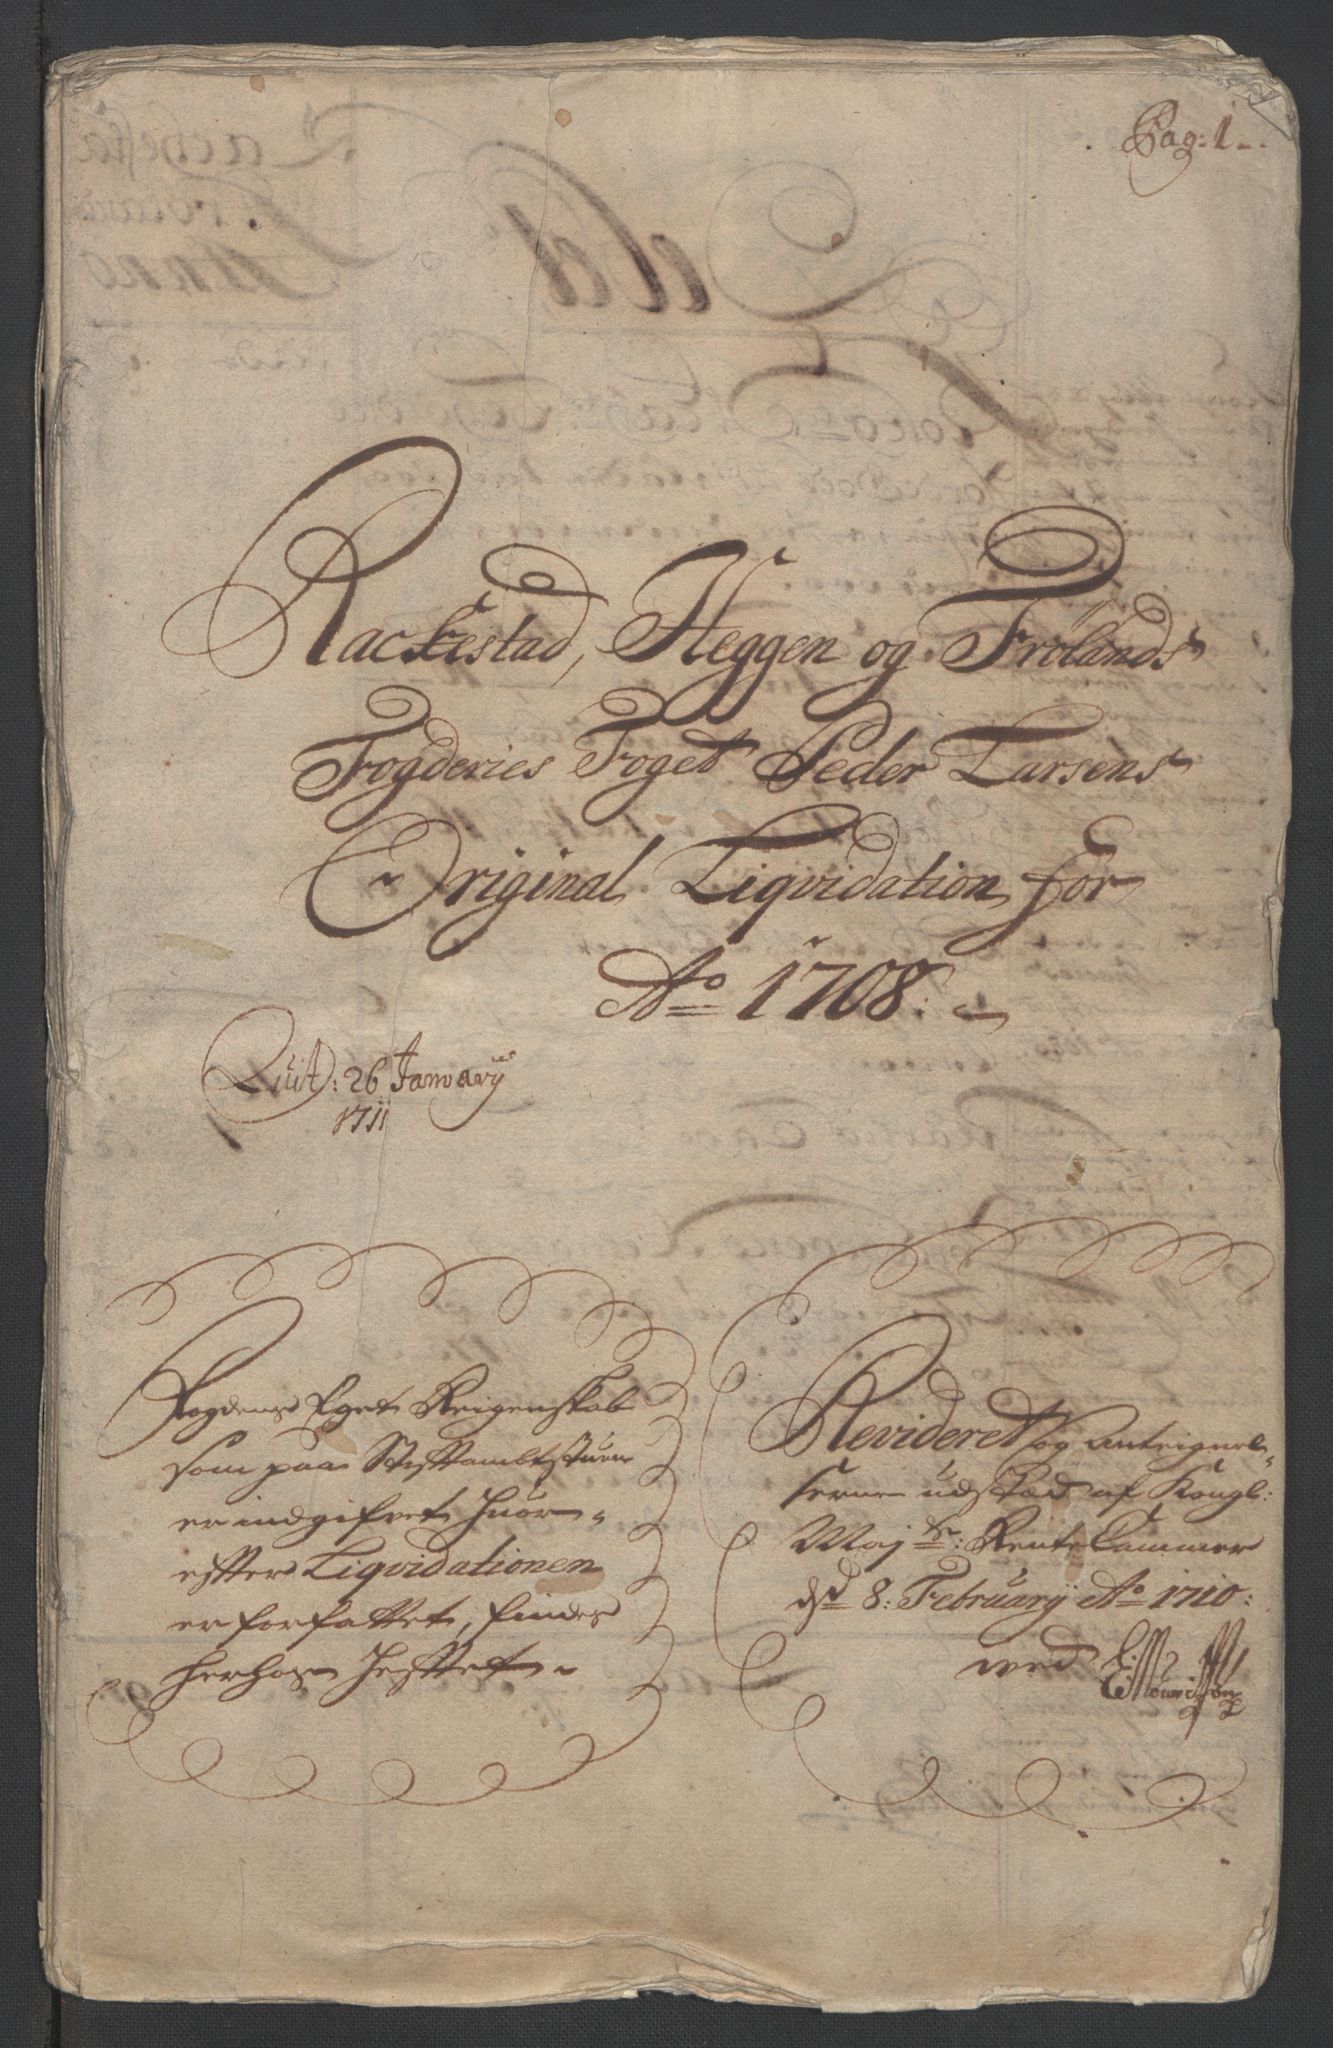 Pag: 1.
Rackestad, Heggen og Frølands
Fogderies Foget Peder Larsens
Original Liqvidation for
Ao 1708.
Quit: 26 January
1711
Fogdens Eget Reigenskab
som paa Stiftambtstuen
er indgifvet huor-
efter Liqvidationen
er forfattet, findes
herhos heftet
Revideret og Antegnel-
serne udstæd af Kongl:
Maj: Rente Cammer
d 8. February Ao 1710:
ved